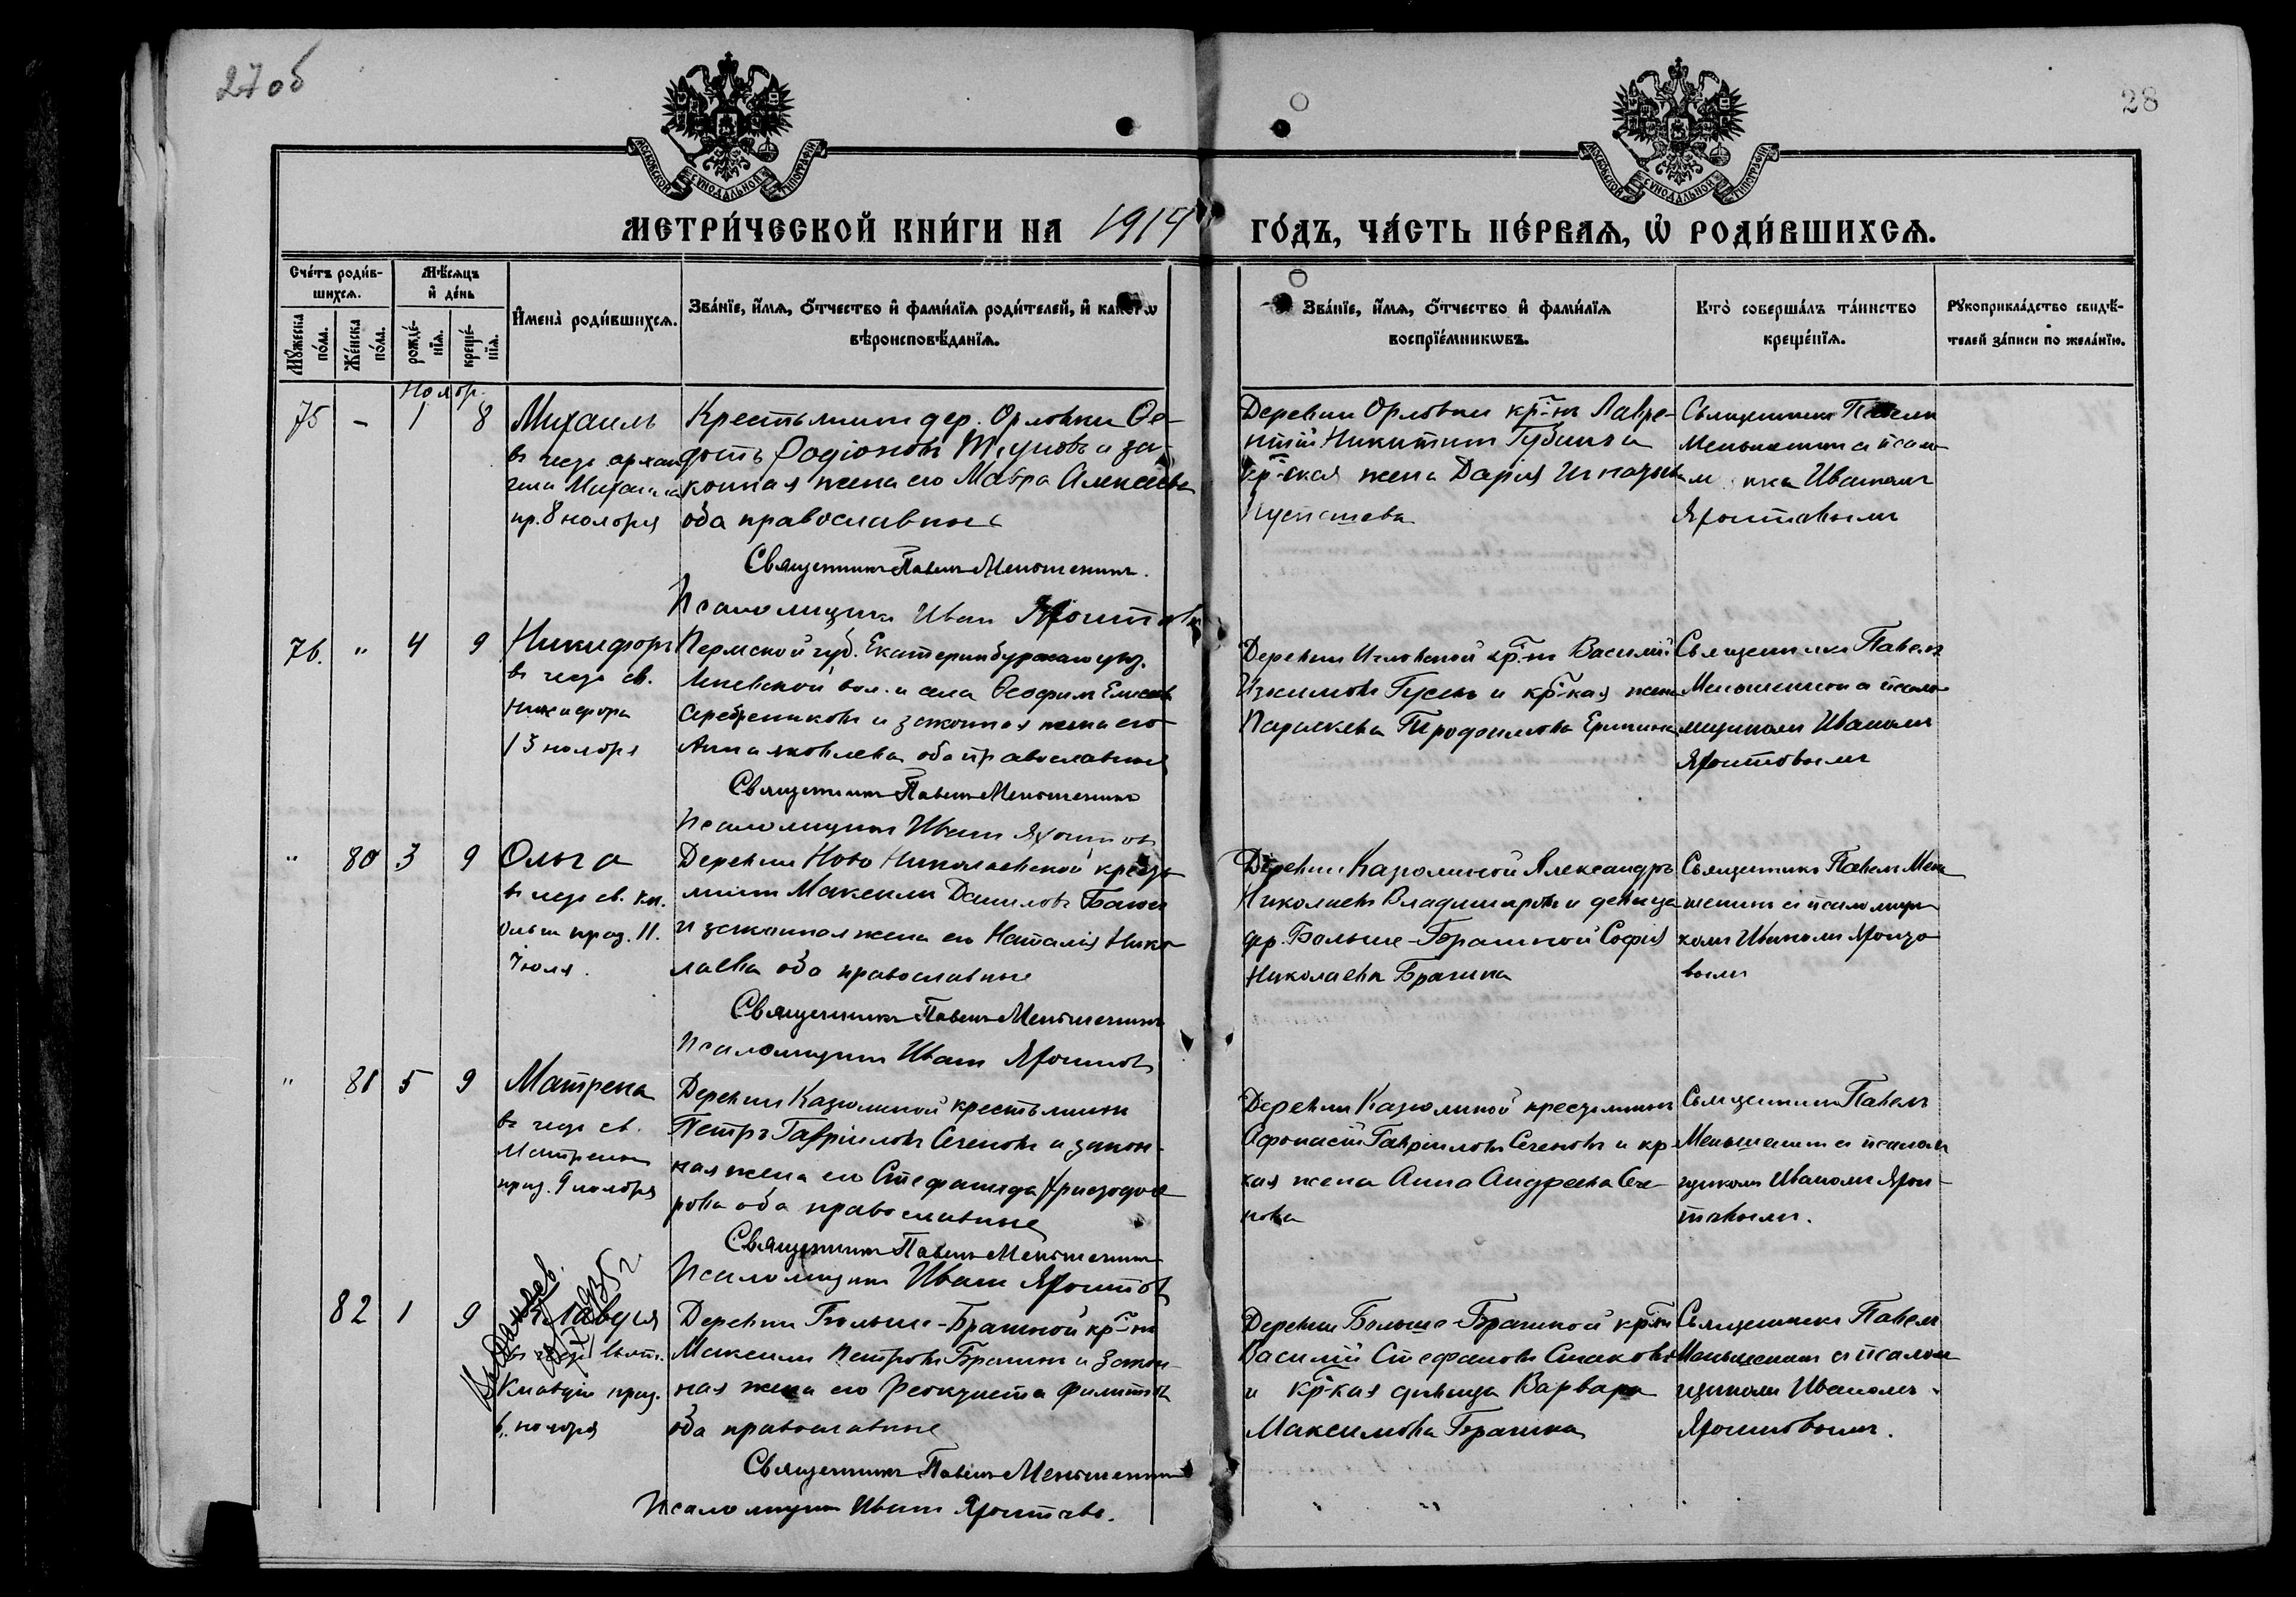 27 об
28
МОСКОВСКОЙ СѴНОДАЛЬНОЙ ТИПОГРАФІИ
МОСКОВСКОЙ СѴНОДАЛЬНОЙ ТИПОГРАФІИ
МЕТРИ́ЧЕСКОЙ КНИ́ГИ НА 1914 ГО́ДЪ, ЧА́СТЬ ПЕ́РВАѦ, Ѡ҆ РОДИ́ВШИХСѦ.
Сче́тъ роди́в-
шихсѧ.
Мꙋ́жеска по́ла.
Же́нска по́ла.
Мѣ́сѧцъ
и҆ де́нь
рожде́-
нїѧ.
креще́-
нїѧ.
И҆мена̀ роди́вшихсѧ.
Зва́нїе, и҆́мѧ, ѻ҆́тчество и҆ фами́лїѧ роди́телей, и҆ како́гѡ
вѣроисповѣ́данїѧ.
Зва́нїе, и҆́мѧ, ѻ҆́тчество и҆ фами́лїѧ
воспрїе́мникѡвъ.
Кто̀ соверша́лъ та́инство
креще́нїѧ.
Рꙋкоприкла́дство свидѣ́-
телей за́писи по жела́нїю.
Ноябр.
75 - 1 8
Михаилъ
въ честь архан
гела Михаила
пр. 8 ноября
Крестьянинъ дер. Орловки Ѳе-
дотъ Родіоновъ и за-
конная жена его Мавра Алексеева
оба православные
Священникъ Павелъ Меньшенинъ.
Псаломщикъ Иван
Деревни Орловки кр-нъ Лавре-
нтій Никитинъ Губинъ и
кр-ская жена Дарія Игнатьева
Священникъ Павелъ
Меньшенинъ и псало-
Иваномъ
76. " 4 9
Никифоръ
въ честь св.
Никифора
13 ноября
Пермской губ. Екатеринбургскаго уез.
вол. и села Ѳеофим Елисеев
Серебренниковъ и законная жена его
Анна Яковлева оба православные
Священникъ Павелъ Меньшенинъ
Псаломщикъ Иван
Деревни кр-нъ Василій
Гусевъ и кр-кая жена
Параскева
Священникъ Павелъ
Меньшенинъ и псало-
мщикомъ Иваномъ
" 80 3 9
Ольга
въ честь св. кн.
Ольги праз. 11.
Іюля.
Деревни Ново Николаевской кресть
янинъ Максимъ Даниловъ
и законная жена его Наталія Нико-
лаева оба православные
Священникъ Павелъ Меньшенинъ
Псаломщикъ Иван
Деревни Казюлиной Александръ
Николаевъ Владимировъ и девица
дер. Больше-Брагиной Софія
Николаева Брагина
Священникъ Павелъ Мень
шенинъ и псаломщи
комъ Иваномъ
" 81 5 9
Матрена
въ честь св.
Матрены
праз. 9 ноября
Деревни Казюлиной крестьянинъ
Петръ Гавріиловъ Сеченовъ и закон-
ная жена его Стефанида Христофо
рова оба православные
Священникъ Павелъ Меньшенинъ
Псаломщикъ Иван
Деревни Казюлиной крестьянинъ
Афонасій Гавріиловъ Сеченовъ и кр
кая жена Анна Андреева Сече-
нова
Священникъ Павелъ
Меньшенинъ и псалом
щикомъ Иваномъ
82 1 9
Клавдія
Клавдіи праз.
6. ноября
Деревни Больше-Брагиной кр-нъ
Максимъ Петровъ Брагинъ и закон-
ная жена его Феоктиста Филиппова
оба православные
Священникъ Павелъ Меньшенинъ
Псаломщикъ Иван
Деревни Больше-Брагиной кр-нъ
Василій Стефановъ
и кр-кая девица Варвара
Максимова Брагина
Священникъ Павелъ
Меньшенинъ и псалом
щикомъ Иваномъ